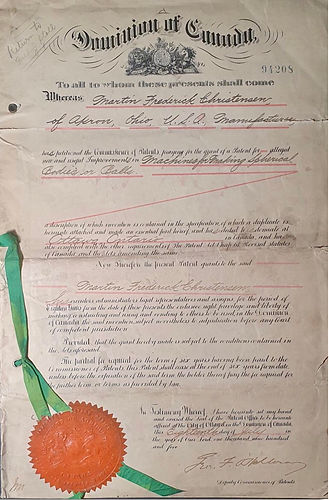 Return to
Dominion of Canada,
94208
To all to whom these presents shall come
Whereas, Martin Frederick Christensen,
of Apron, Ohio, U.S.A., Manufacturer
has petitioned the Commissioner of Patents, praying for the grant of a Patent for alleged
new and useful Improvements in Machines for Making Spherical
Bodies or Balls.
a description of which invention is contained in the specification of which a duplicate is
hereunto attached and made an essential part hereof and has elected his domicile at
Ottawa, Ontario in Canada, and has
also complied with the other requirements of the Patent Act
of Canada and the Acts amending the same.
Now Therefore the present Patent grants to the said
Martin Frederick Christensen,
his executors administrators legal representatives and assigns for the period of
Eighteen Years from the date of these presents the exclusive right privilege and liberty of
making constructing and using and vending to others to be used, in the Dominion
of Canada the said invention, subject nevertheless to adjudication before any Court
of competent jurisdiction.
Provided that the grant hereby made is subject to the conditions contained in
the Act aforesaid.
The partial fee required for the term of six years having been paid to the
Commissioner of Patents this Patent shall cease at the end of six years from date
unless before the expiration of the said term the holder thereof pay the fee required for
a further term or terms as provided by law.
In Testimony Whereof I have hereunto set my hand
and caused the Seal of the Patent Office to be hereunto
affixed at the City of Ottawa in the Dominion of Canada
this Eighteenth day of in
the year of Our Lord one thousand nine hundred
and five
Deputy Commissioner of Patents.